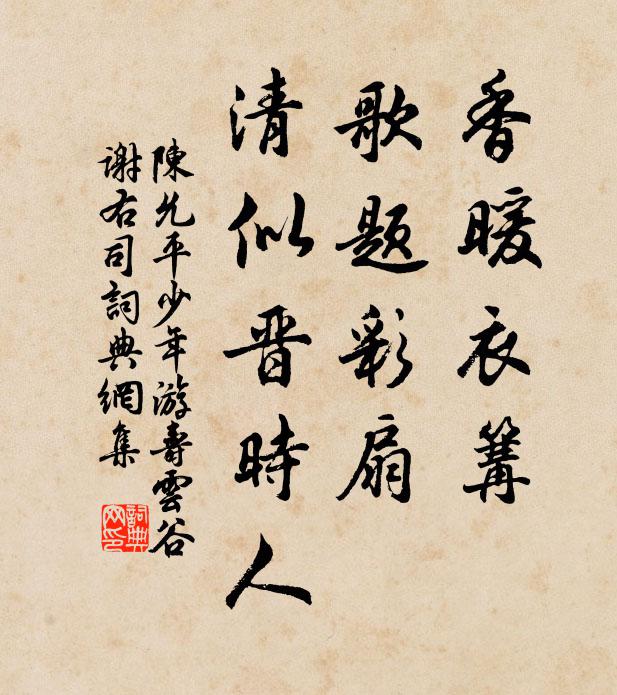 香暖衣篝
歌题彩扇
清似晋時人
陳允平少年游壽雲谷
謝右司詞典網集
詞典
网印